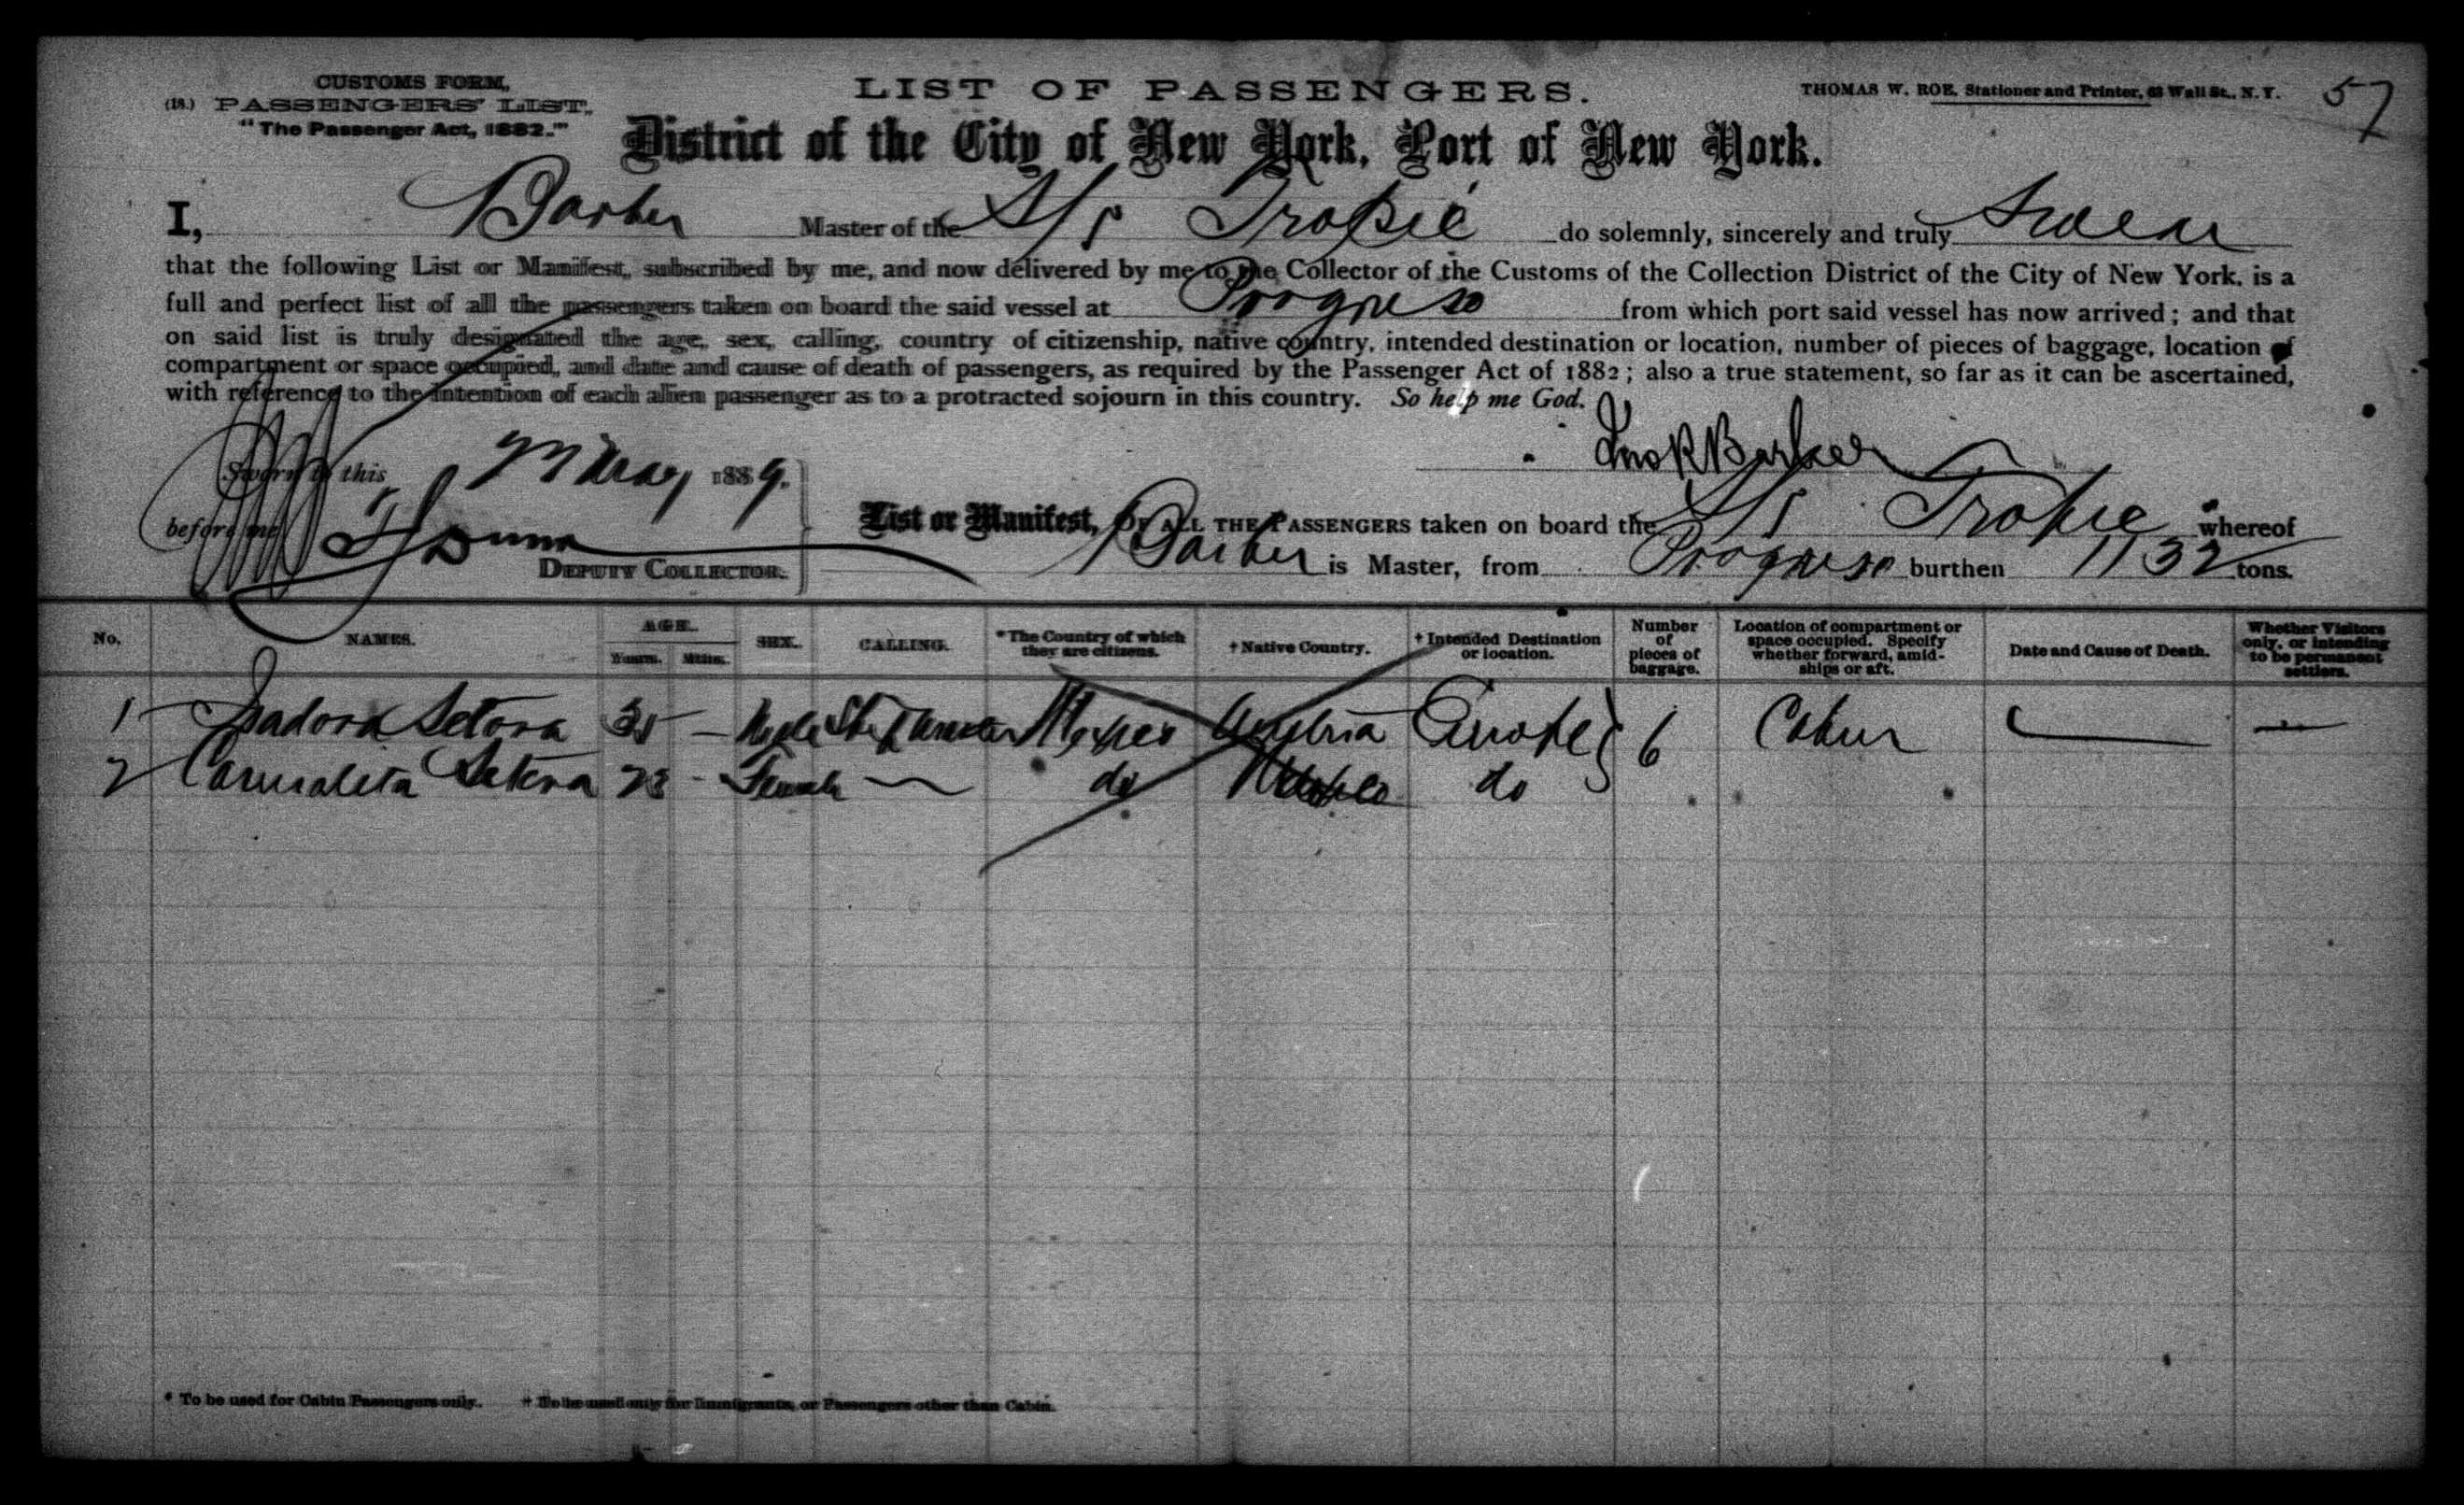 CUSTOMS FORM,
(18.) PASSENGERS' LIST,
"The Passenger Act, 1882."
LIST OF PASSENGERS.
THOMAS W. ROE, Stationer and Printer, 63 Wall St., N. Y.
57
District of the City of New York, Port of New York.
I, Barker Master of the S/S Tropic do solemnly, sincerely and truly Swear
that the following List or Manifest, subscribed by me, and now delivered by me to the Collector of the Customs of the Collection District of the City of New York, is a
full and perfect list of all the passengers taken on board the said vessel at Progreso from which port said vessel has now arrived; and that
on said list is truly designated the age, sex, calling, country of citizenship, native country, intended destination or location, number of pieces of baggage, location of
compartment or space occupied, and date and cause of death of passengers, as required by the Passenger Act of 1882; also a true statement, so far as it can be ascertained,
with reference to the intention of each alien passenger as to a protracted sojourn in this country. So help me God.
Jno R Barker
Sworn to this May 1889.
before me
DEPUTY COLLECTOR.
List or Manifest, OF ALL THE PASSENGERS taken on board the S/S Tropic whereof
Barker is Master, from Progreso burthen 1132 tons.
No. NAMES. AGE. Years. Mths. SEX. CALLING. *The Country of which they are citizens. † Native Country. † Intended Destination or location. Number of pieces of baggage. Location of compartment or space occupied. Specify whether forward, amidships or aft. Date and Cause of Death. Whether Visitors only, or intending to be permanent settlers.
1 Isadora Setova — Male Mexico Austria Europe } 6 Cabin — —
2 Carmalita Setova 23 - Female — do Mexico do
* To be used for Cabin Passengers only. † To be used only for Immigrants, or Passengers other than Cabin.